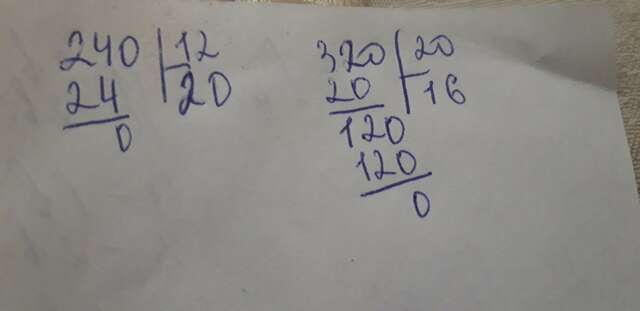 240 12
24 20
0
320 20
20 16
120
120
0